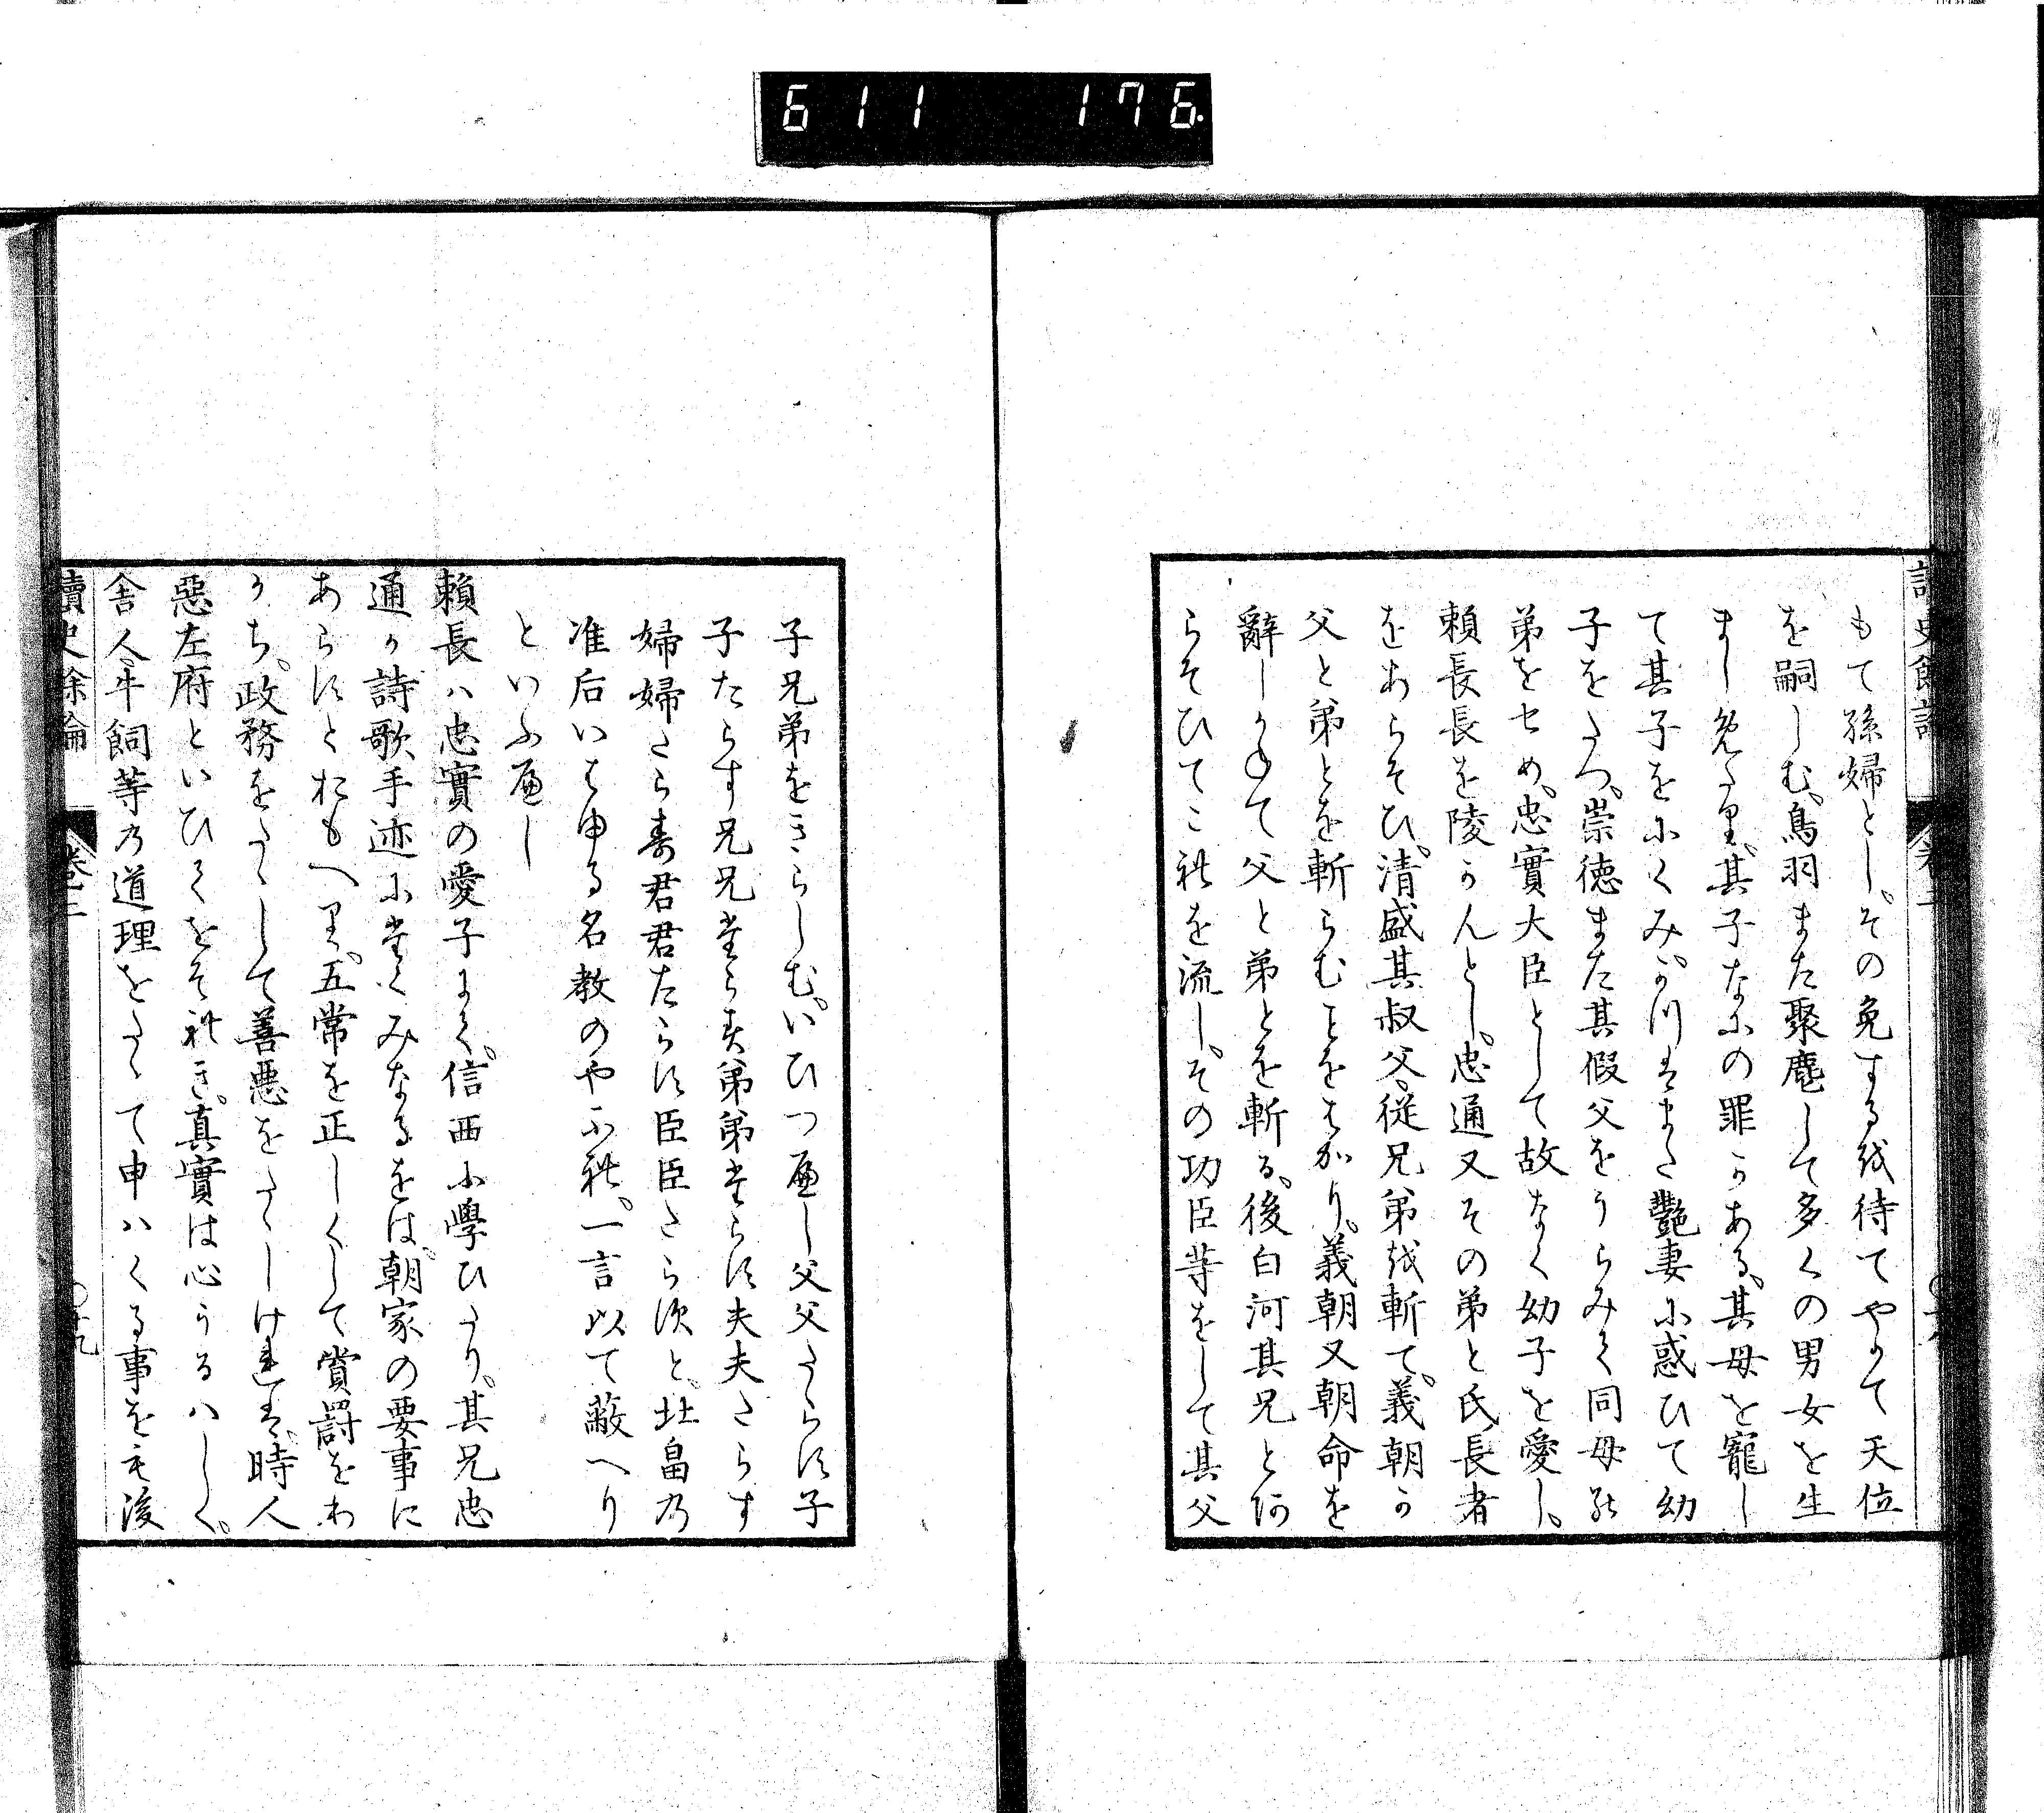 611 176
讀史餘論 卷二
もて孫婦としその免する越待てやかて天位
を嗣しむ鳥羽また聚麀して多くの男女を生
まし免たり其子なにの罪かある其母を寵し
て其子をにくみかつはまた艷妻に惑ひて幼
子をたつ崇徳また其假父をうらみて同母の
弟をせめ忠實大臣として故なく幼子を愛し
頼長長を陵かんとし忠通又その弟と氏長者
をあらそひ清盛其叔父従兄弟越斬て義朝か
父と弟とを斬らむことをはかり義朝又朝命を
辭しかねて父と弟とを斬る後白河其兄とあ
らそひてこれを流しその功臣等をして其父
子兄弟をきらしむいひつへし父父たらす子
子たらす兄兄たらす弟弟たらす夫夫たらす
婦婦たらす君君たらす臣臣たらすと北畠の
准后いはゆる名教のやふれ一言以て蔽へり
といふへし
頼長ハ忠實の愛子にて信西に學ひたり其兄忠
通か詩歌手迹にたくみなるをは朝家の要事に
あらすとおもへり五常を正しくして賞罰をわ
かち政務をたゝして善悪をたゝしけれは時人
惡左府といひておそれき真實は心うるハしく
舎人牛飼等の道理をたゝて申ハくる事をも後
讀史餘論 卷二 〇十九